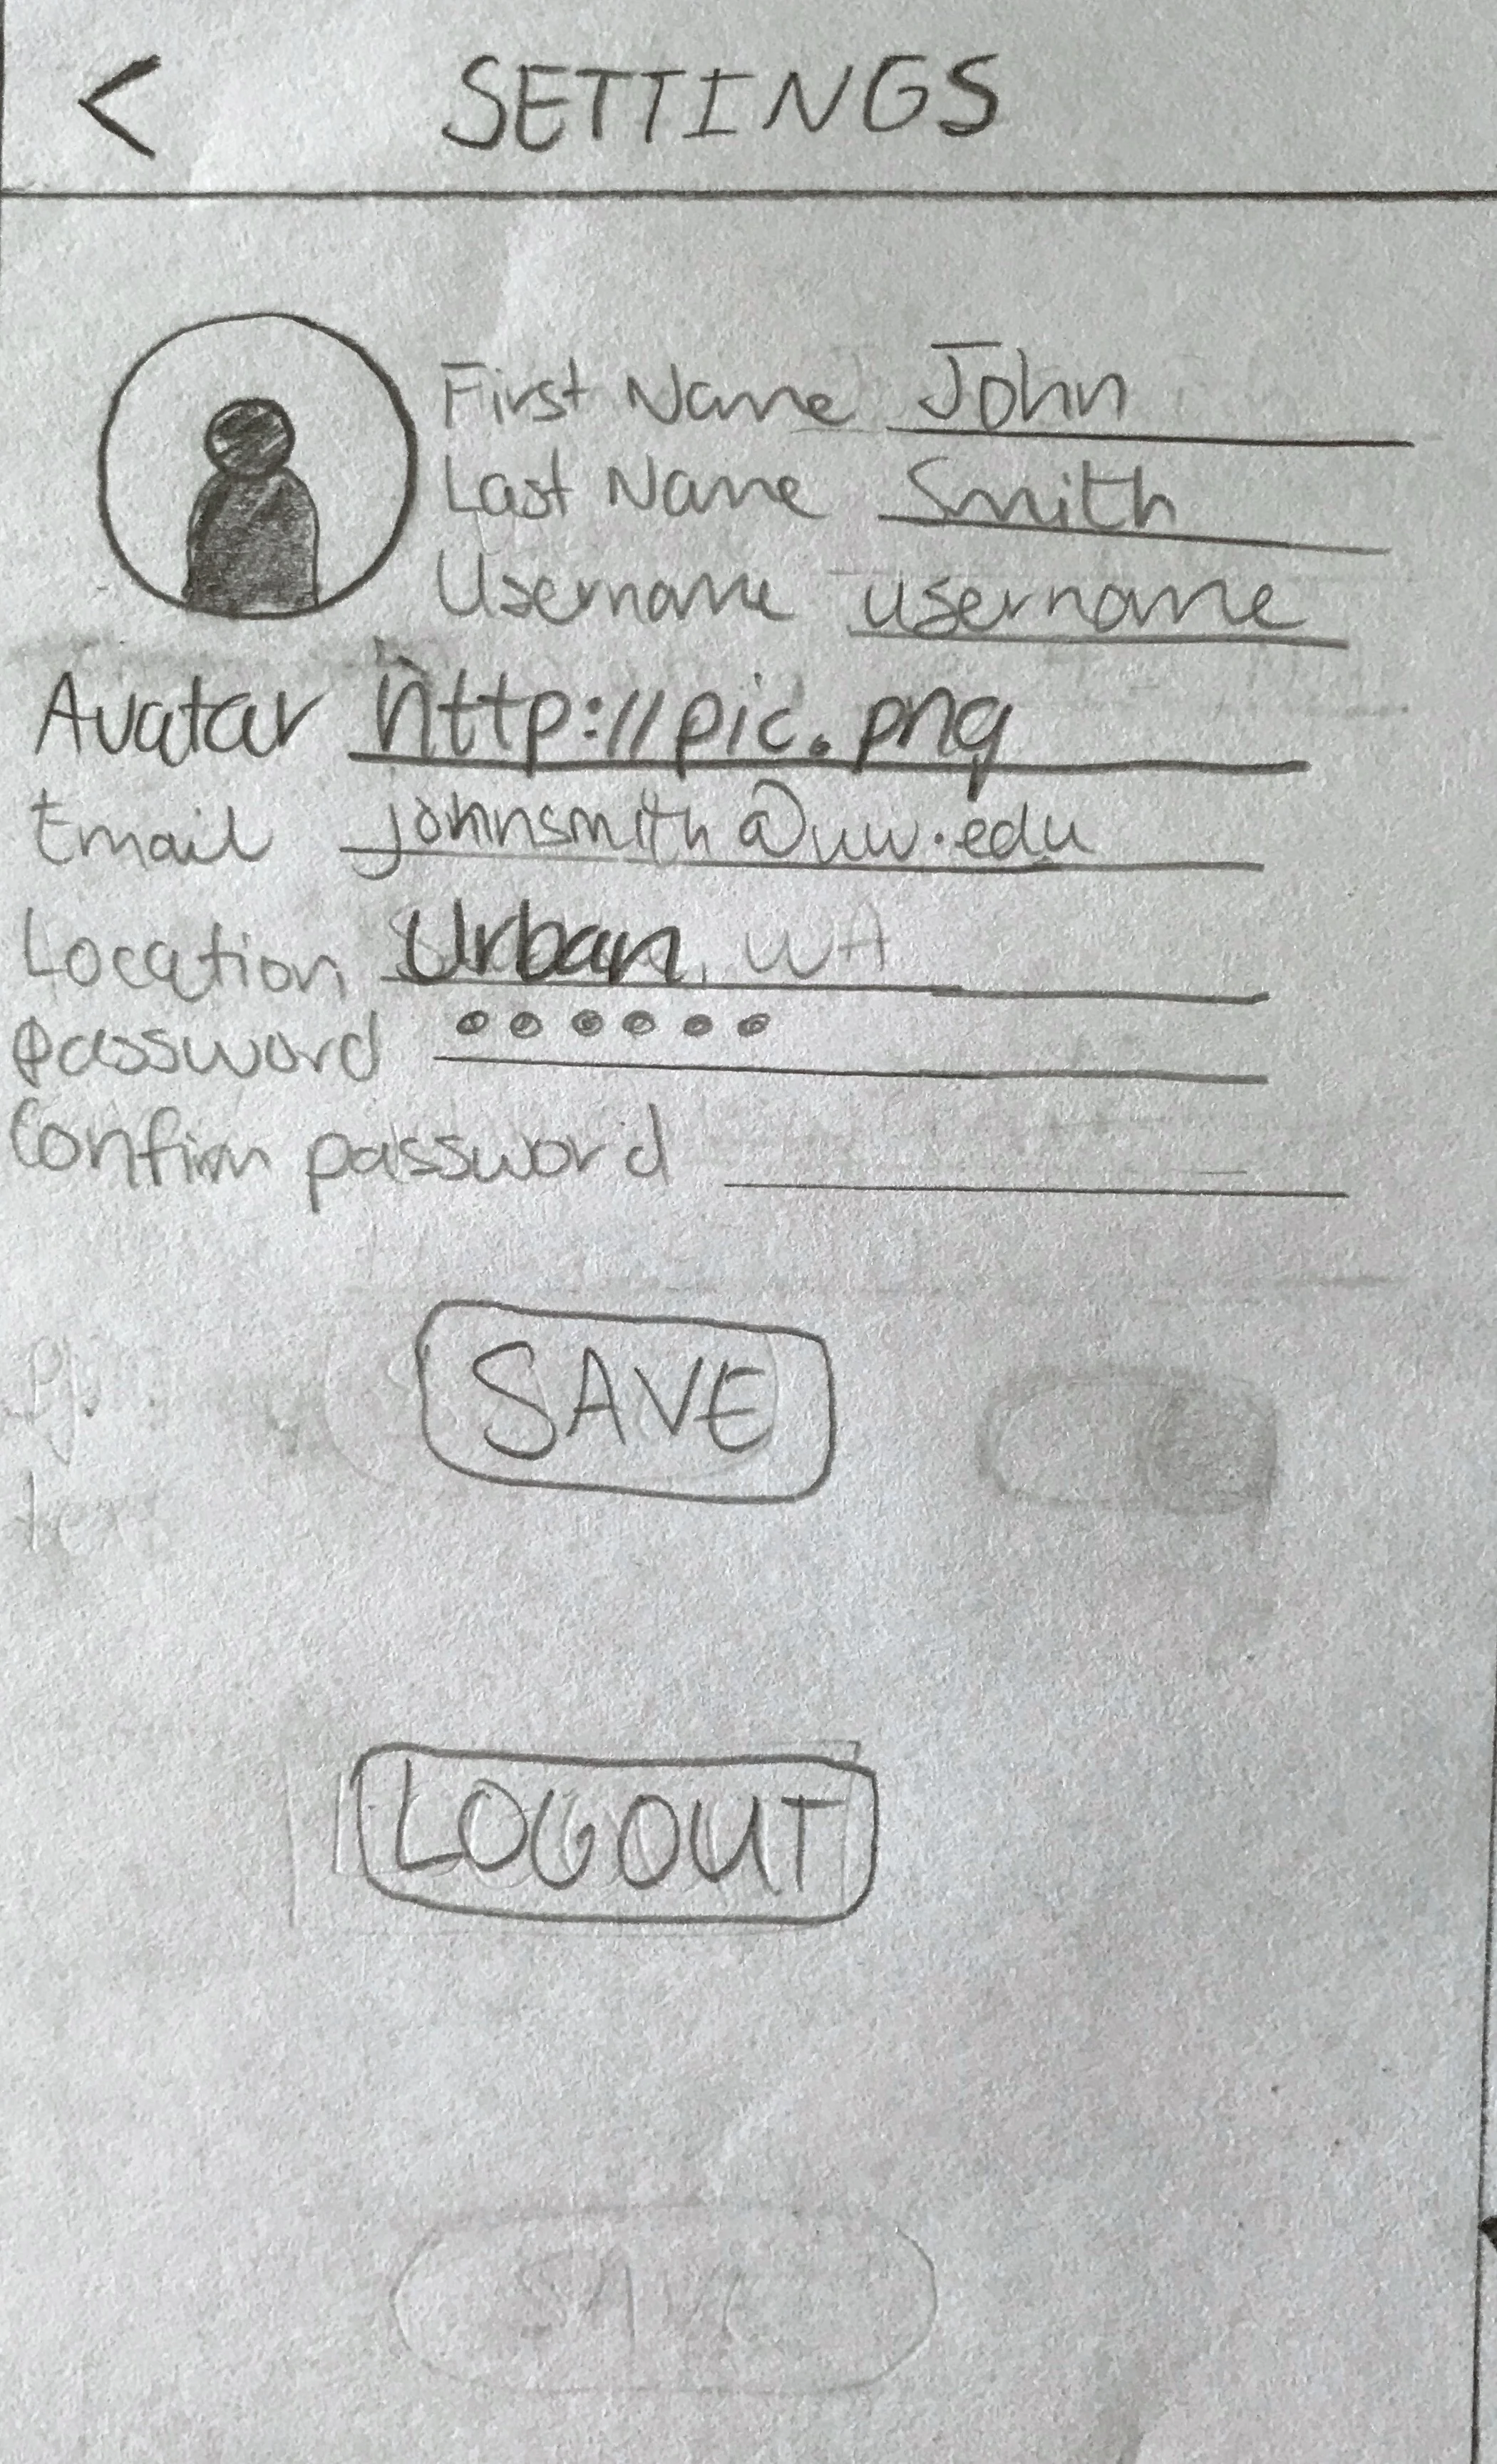 < SETTINGS
First Name John
Last Name Smith
Username username
Avatar http://pic.png
Email johnsmith@uw.edu
Location Urban, WA
Password ●●●●●●
Confirm password
SAVE
LOGOUT
SAVE